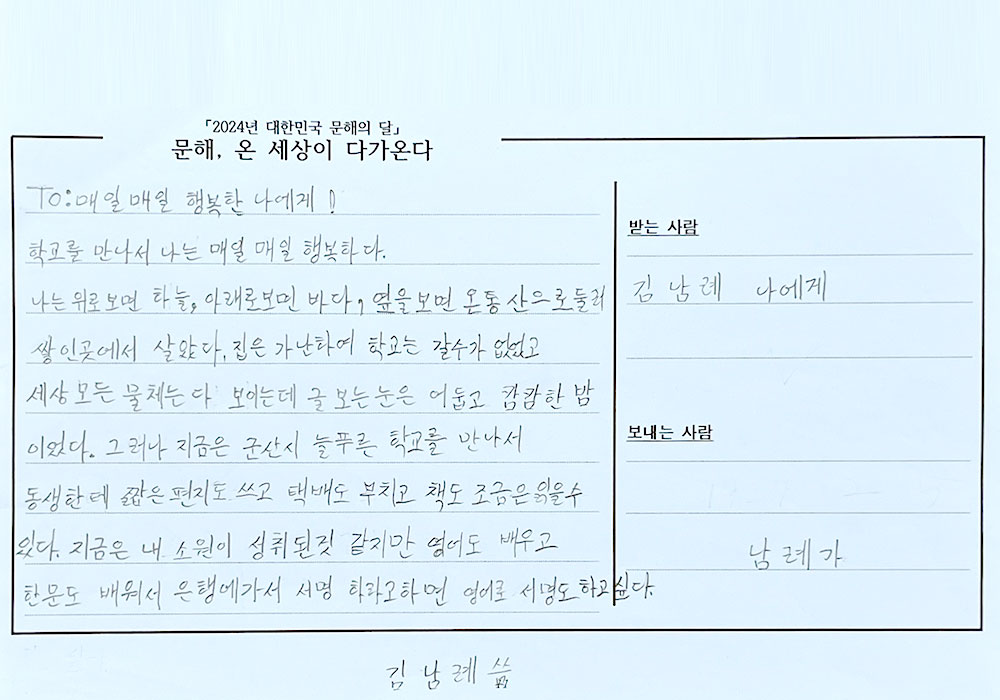 「2024년 대한민국 문해의 달」
문해, 온 세상이 다가온다
To:매일매일 행복한 나에게!
학교를 만나서 나는 매일 매일 행복하다.
나는 위로보면 하늘, 아래로보면 바다, 옆을보면 온통 산으로둘러
쌓인곳에서 살았다. 집은 가난하여 학교는 갈수가 없었고
세상 모든 물체는 다 보이는데 글 보는 눈은 어둡고 캄캄한 밤
이었다. 그러나 지금은 군산시 늘푸른 학교를 만나서
동생한테 짧은 편지도 쓰고 택배도 부치고 책도 조금은 읽을수
있다. 지금은 내 소원이 성취된것 같지만 영어도 배우고
한문도 배워서 은행에가서 서명 하라고하면 영어로 서명도 하고싶다.
받는 사람
김남례 나에게
보내는 사람
남례가
김남례 씀